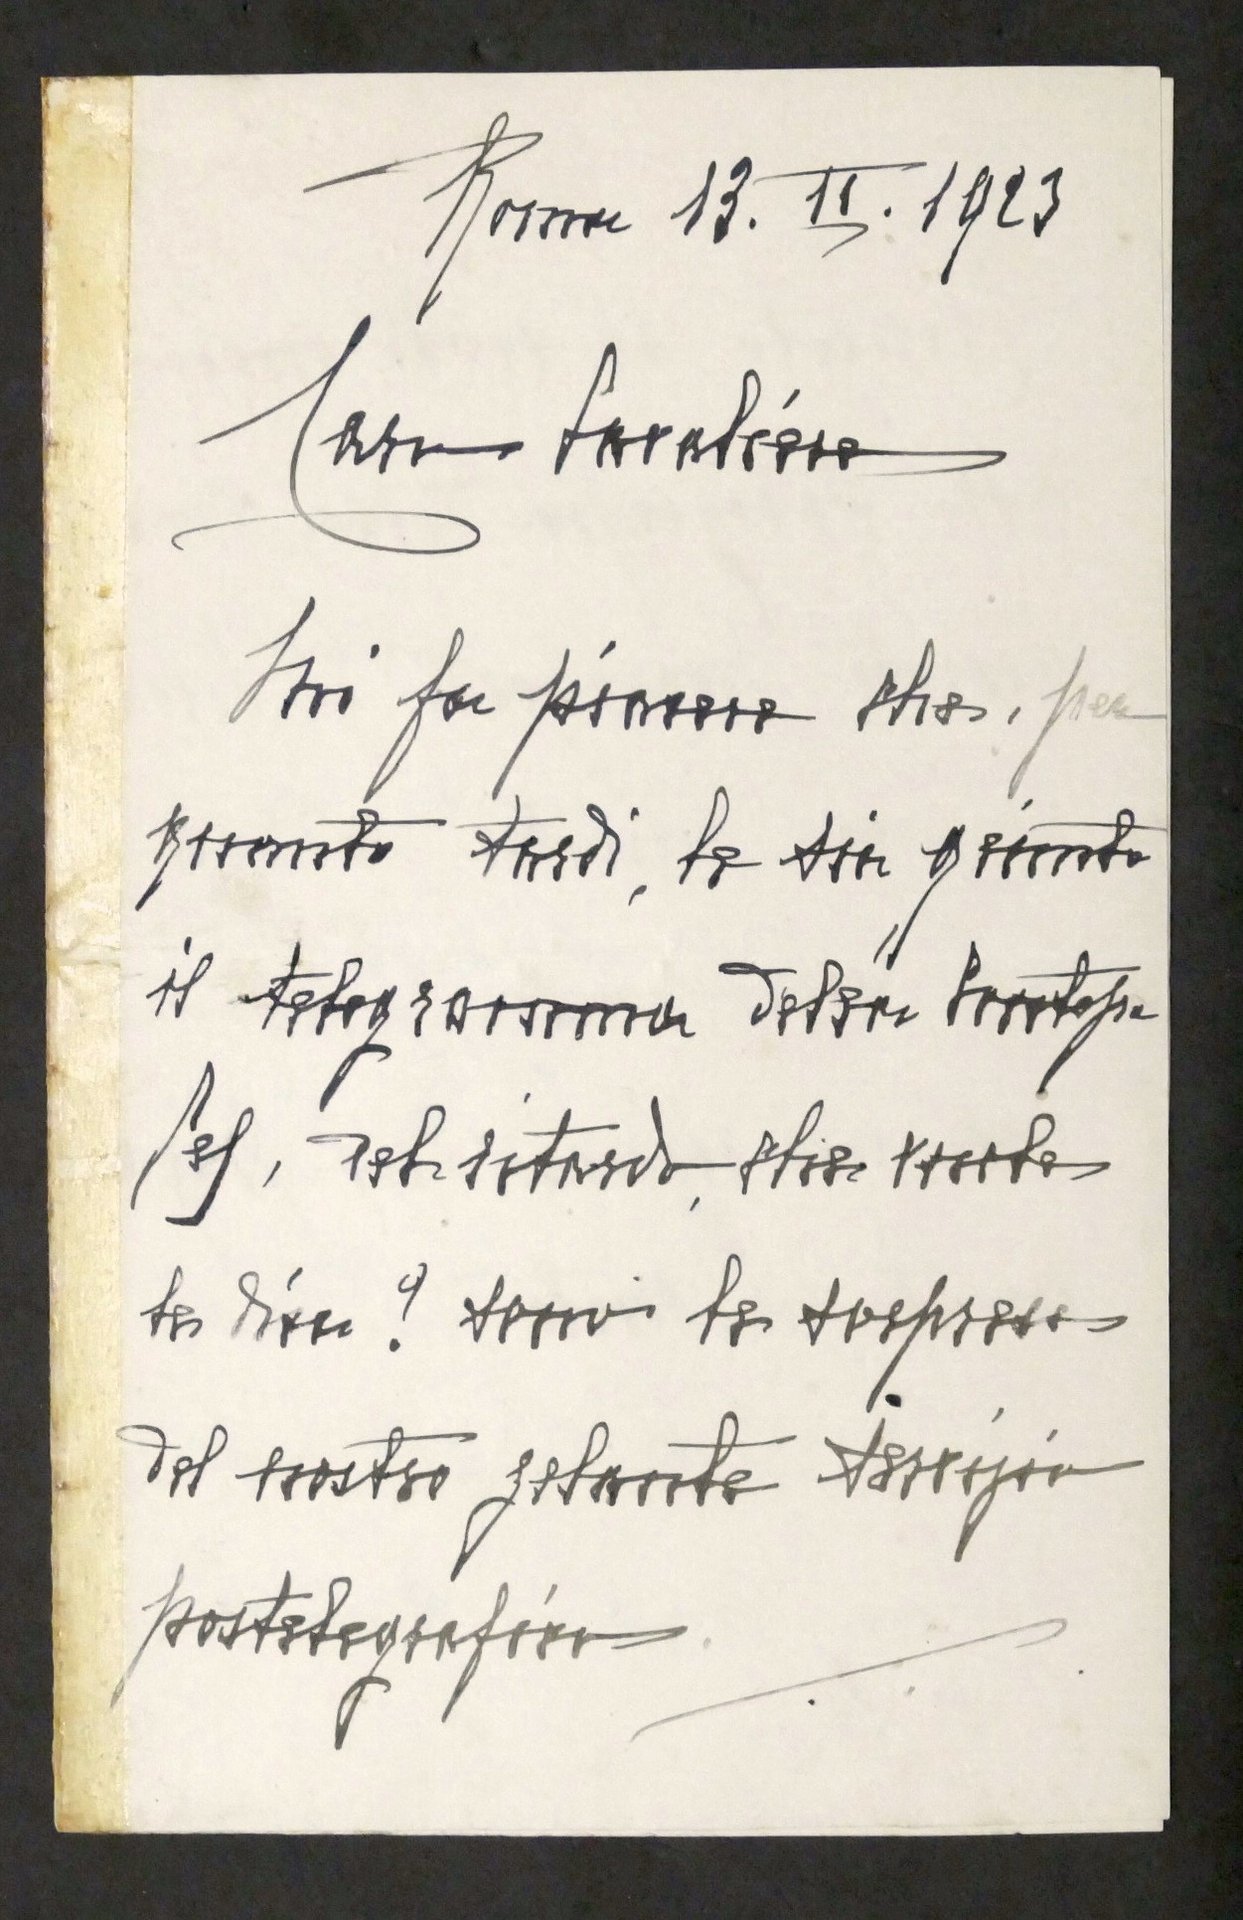 Roma 13. II. 1923
Caro Cavaliere
Mi fa piacere che, per
quanto tardi, le sia giunto
il telegramma della
del ritardo, che vuole
le dica? sono le sorprese
del nostro zelante servizio
postelegrafico.